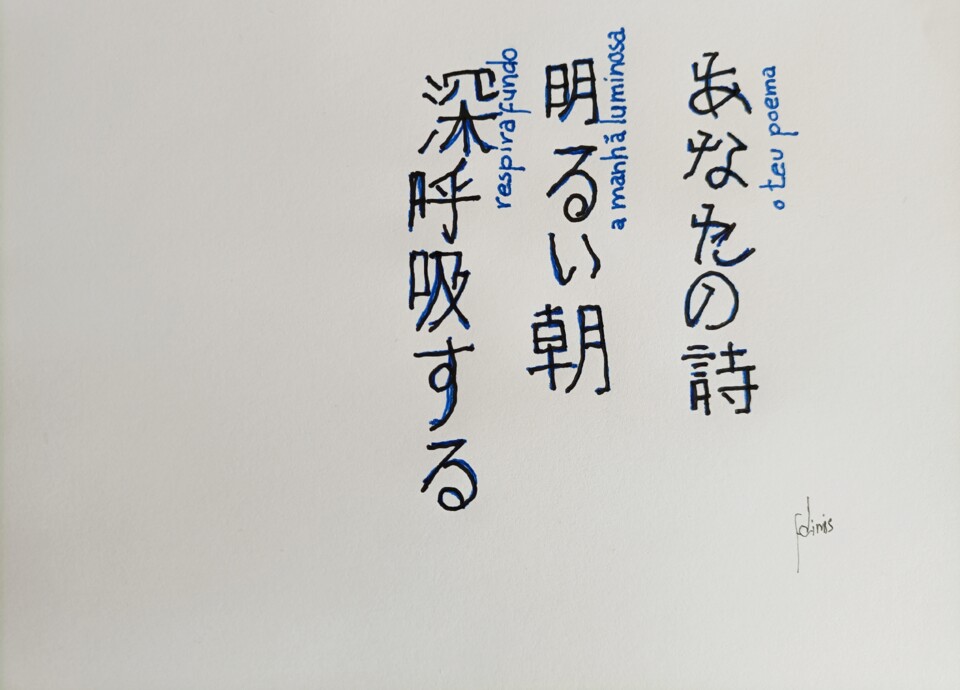 あなたの詩
o teu poema
明るい朝
a manhã luminosa
深呼吸する
respira fundo